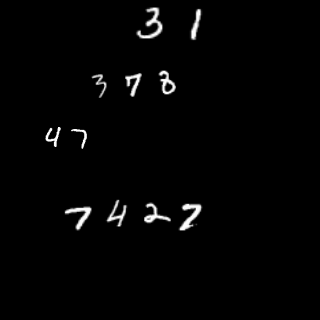 31
378
47
7427